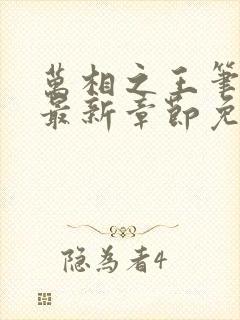 萬相之王筆
最新章節免
隐為者4